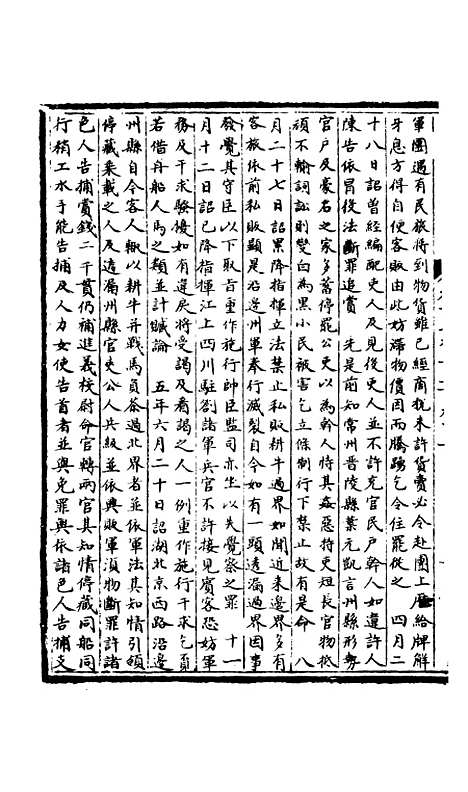 軍團遇有民旅將到物貨雖已經商稅未許貨賣必令赴團上曆給牌解
牙息方得自便客販由此妨滯物價因而騰踴乞令住罷從之　四月二
十八日詔曾經編配吏人及見役吏人並不許充官民戶幹人如違許人
陳告依冒役法斷罪追賞　先是前知常州晉陵縣葉元凱言州縣形勢
官戶及豪右之家多蓄停罷公吏以為幹人恃其姦惡持吏短長官物抵
頑不輸詞訟則變白為黑小民被害乞立條制行下禁止故有是命　八
月二十七日詔累降指揮立法禁止私販耕牛過界如聞近來邊界多有
客旅依前私販顯是沿邊州軍奉行滅裂自今如有一頭透漏過界因事
發覺其守臣以下取旨重作施行帥臣監司亦坐以失覺察之罪　十一
月十二日詔已降指揮江上四川駐劄諸軍兵官不許接見賓客恐妨軍
務及干求騷擾如有違戾將受謁及看謁之人一例重作施行干求乞覓
若借舟船人馬之類並計贓論　五年六月二十日詔湖北京西路沿邊
州縣自今客人輒以耕牛并戰馬負茶過北界者並依軍法其知情引領
停藏乘載之人及透漏州縣官吏公人兵級並依興販軍須物斷罪許諸
色人告捕賞錢二千貫仍補進義校尉命官轉兩官其知情停藏同船同
行梢工水手能告捕及人力女使告首者並與免罪與依諸色人告捕支